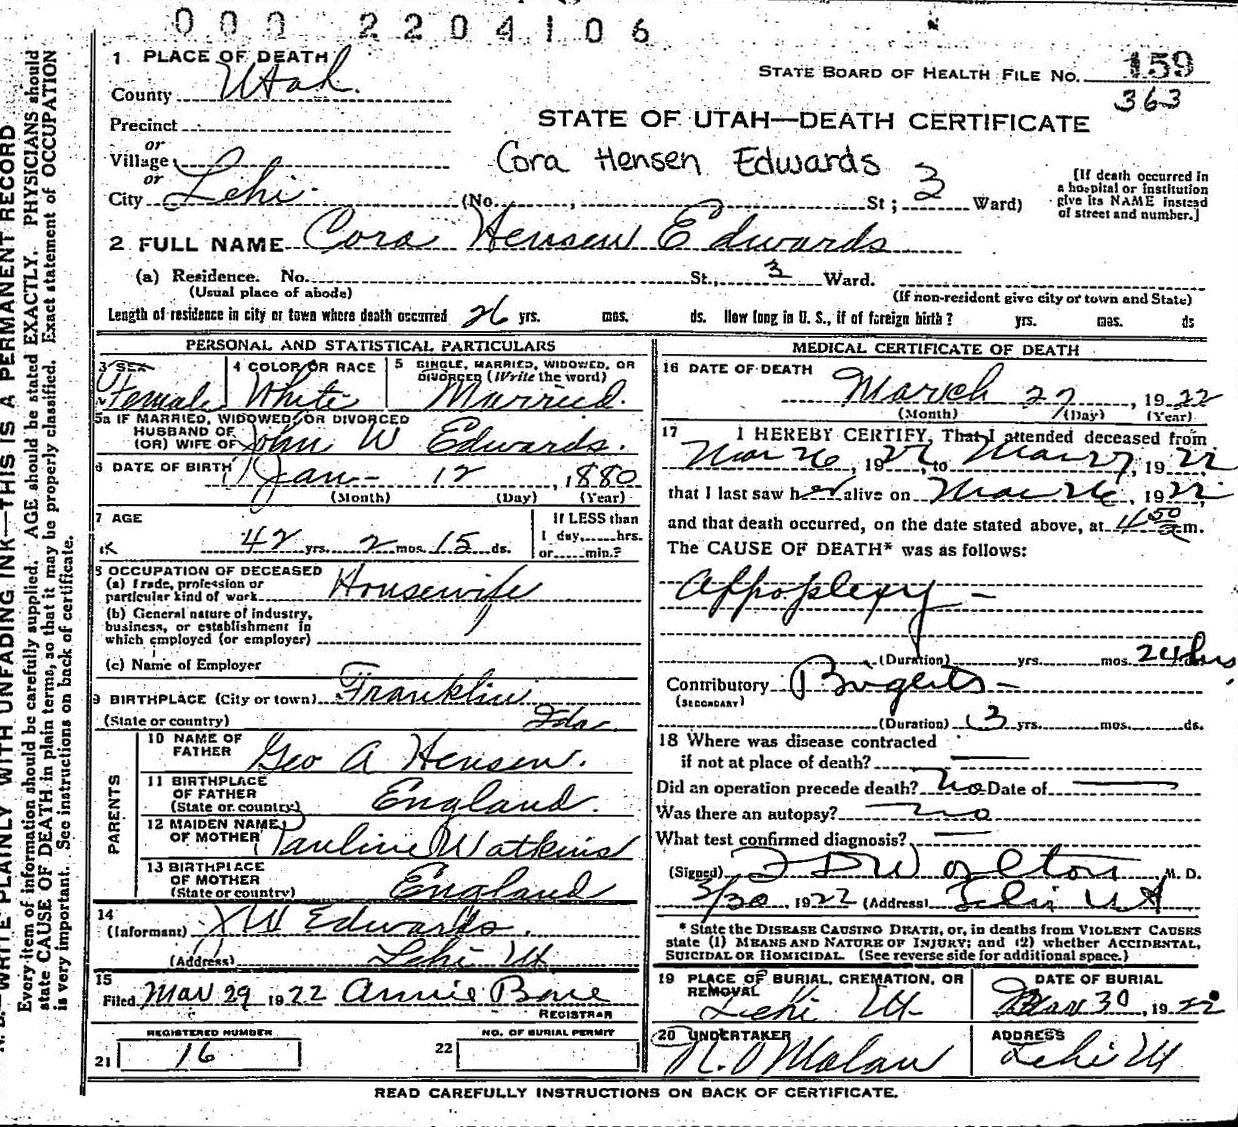 000 2204106
1 PLACE OF DEATH
County Utah.
STATE BOARD OF HEALTH FILE NO. 159
363
Precinct
STATE OF UTAH—DEATH CERTIFICATE
or
Village
Cora Hensen Edwards
or
City Lehi. (No. , St; 3 Ward)
[If death occurred in
a hospital or institution
give its NAME instead
of street and number.]
2 FULL NAME Cora Hensen Edwards
(a) Residence. No. St., 3 Ward.
(Usual place of abode)
(If non-resident give city or town and State)
Length of residence in city or town where death occurred 26 yrs. mos. ds. How long in U. S., if of foreign birth? yrs. mos. ds
PERSONAL AND STATISTICAL PARTICULARS
3 SEX
Female
4 COLOR OR RACE
White
5 SINGLE, MARRIED, WIDOWED, OR
DIVORCED (Write the word)
Married.
5a IF MARRIED, WIDOWED, OR DIVORCED
HUSBAND OF
(OR) WIFE OF John W Edwards.
6 DATE OF BIRTH Jan- 12, 1880
(Month) (Day) (Year)
7 AGE
42 yrs. 2 mos. 15 ds.
If LESS than
1 day,......hrs.
or......min.?
8 OCCUPATION OF DECEASED
(a) Trade, profession or
particular kind of work Housewife
(b) General nature of industry,
business, or establishment in
which employed (or employer)
(c) Name of Employer
9 BIRTHPLACE (City or town) Franklin
(State or country) Ida.
PARENTS
10 NAME OF
FATHER Geo A Hensen.
11 BIRTHPLACE
OF FATHER
(State or country) England.
12 MAIDEN NAME
OF MOTHER Pauline Watkins
13 BIRTHPLACE
OF MOTHER
(State or country) England
14
(Informant) J W Edwards.
(Address) Lehi Ut
15
Filed Mar 29 1922 Annie Bone
REGISTRAR
REGISTERED NUMBER
21 16
NO. OF BURIAL PERMIT
22
MEDICAL CERTIFICATE OF DEATH
16 DATE OF DEATH
March 27, 1922
(Month) (Day) (Year)
17 I HEREBY CERTIFY, That I attended deceased from
Mar 26, 1922, to Mar 27, 1922
that I last saw her alive on Mar 26, 1922
and that death occurred, on the date stated above, at 4 50 a m.
The CAUSE OF DEATH* was as follows:
Appoplexy -
(Duration) yrs. mos. 24 hrs.
Contributory Brights -
(SECONDARY)
(Duration) 3 yrs. mos. ds.
18 Where was disease contracted
if not at place of death? —
Did an operation precede death? No Date of —
Was there an autopsy? no
What test confirmed diagnosis? —
(Signed) M. D.
3/30 1922 (Address) Lehi Ut
* State the DISEASE CAUSING DEATH, or, in deaths from VIOLENT CAUSES
state (1) MEANS AND NATURE OF INJURY; and (2) whether ACCIDENTAL,
SUICIDAL OR HOMICIDAL. (See reverse side for additional space.)
19 PLACE OF BURIAL, CREMATION, OR
REMOVAL
Lehi Ut.
DATE OF BURIAL
Mar 30, 1922
20 UNDERTAKER
ADDRESS
Lehi Ut
READ CAREFULLY INSTRUCTIONS ON BACK OF CERTIFICATE.
N. B.—WRITE PLAINLY WITH UNFADING INK—THIS IS A PERMANENT RECORD
Every item of information should be carefully supplied. AGE should be stated EXACTLY. PHYSICIANS should
state CAUSE OF DEATH in plain terms, so that it may be properly classified. Exact statement of OCCUPATION
is very important. See instructions on back of certificate.